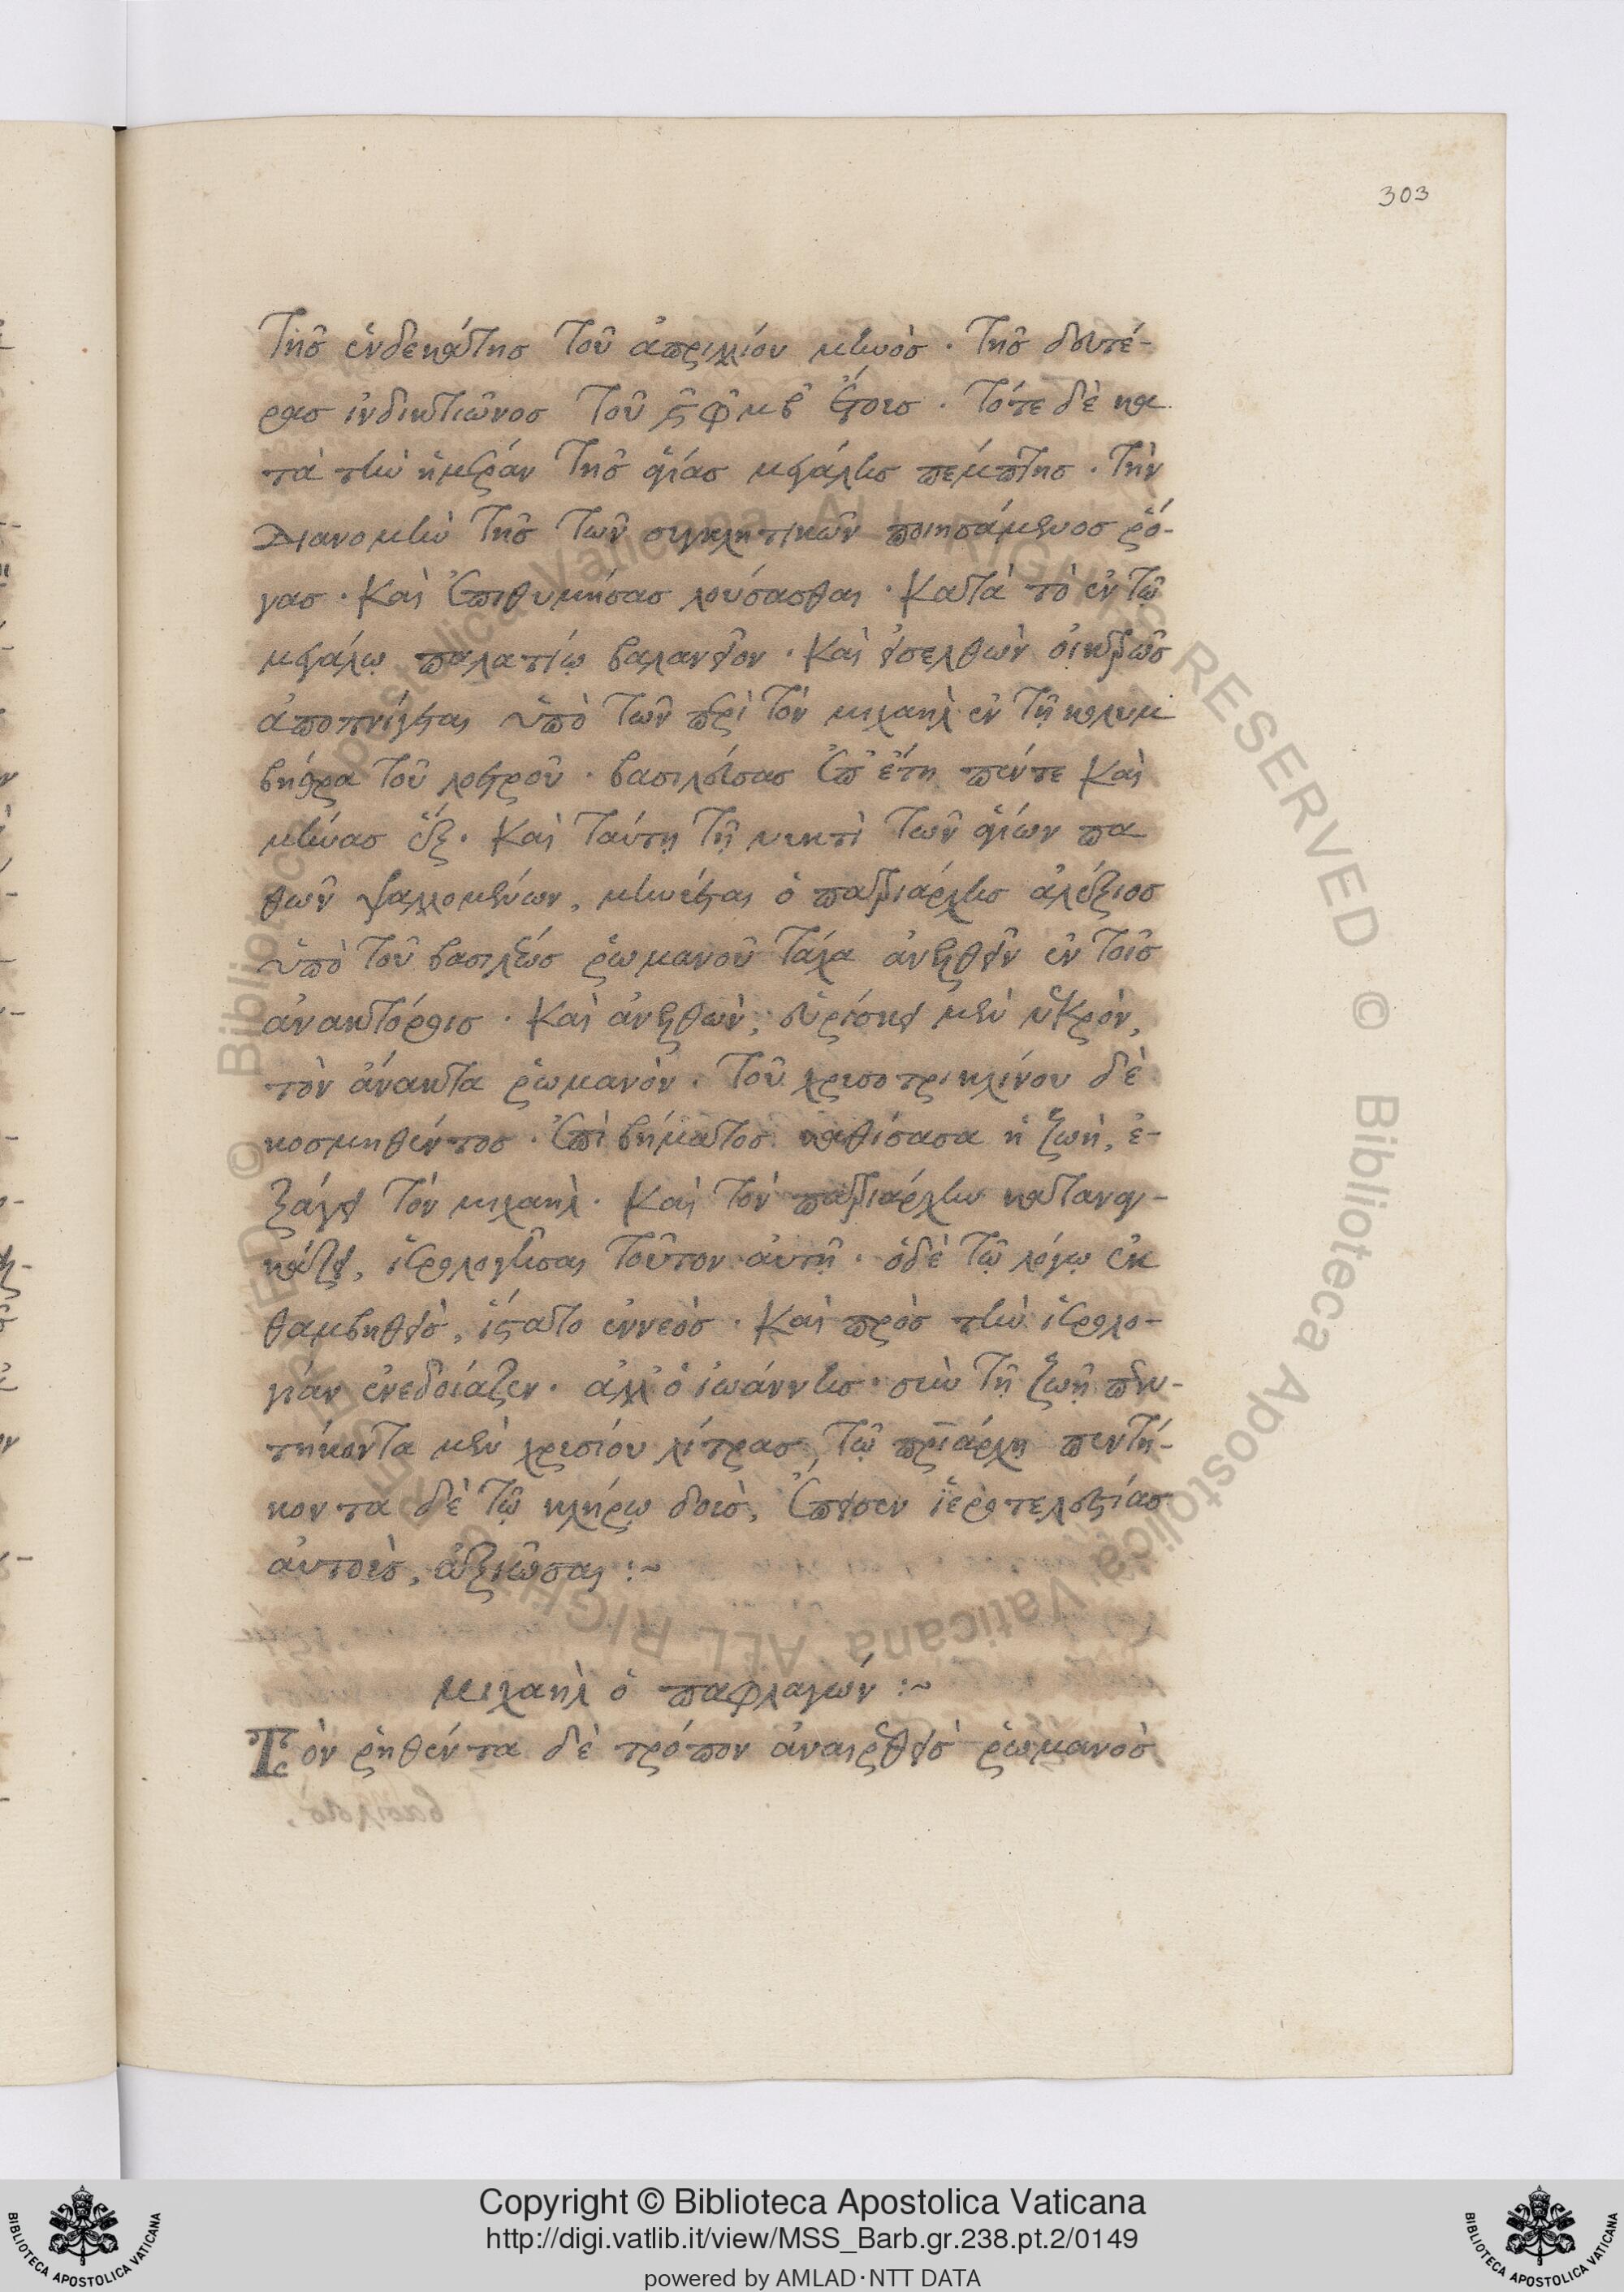 303
τῆς ἑνδεκάτης τοῦ ἀπριλλίου μηνὸς · τῆς δευτέ-
ρας ἰνδικτιῶνος τοῦ ϛ̄φ̄μβ̄ ἔτους · τότε δὲ κα
τὰ τὴν ἡμέραν τῆς ἁγίας μεγάλης πέμπτης · τὴν
διανομὴν τῆς τῶν συγκλητικῶν ποιησάμενος ῥό-
γας · καὶ ἐπιθυμήσας λούσασθαι · κατὰ τὸ ἐν τῷ
μεγάλῳ παλατίῳ βαλανεῖον · καὶ εἰσελθὼν οἰκτρῶς
ἀποπνίγεται ὑπὸ τῶν περὶ τὸν μιχαὴλ ἐν τῇ κολυμ
βήθρα τοῦ λοετροῦ · βασιλεύσας ἐπ' ἔτη πέντε καὶ
μῆνας ἕξ · καὶ ταύτῃ τῇ νυκτὶ τῶν ἁγίων πα
θῶν ψαλλομένων, μηνύεται ὁ πατριάρχης ἀλέξιος
ὑπὸ τοῦ βασιλέως ῥωμανοῦ τάχα ἀνελθεῖν ἐν τοῖς
ἀνακτόροις · καὶ ἀνελθὼν, εὑρίσκει μὲν νεκρὸν,
τὸν ἄνακτα ῥωμανὸν · τοῦ χρυσοτρικλίνου δὲ
κοσμηθέντος · ἐπὶ βήματος καθίσασα ἡ ζωὴ, ἐ-
ξάγει τὸν μιχαὴλ · καὶ τὸν πατριάρχην καταναγ-
κάζει, ἱερολογῆσαι τοῦτον αὐτῇ · ὁ δὲ τῷ λόγῳ ἐκ
θαμβηθεὶς, ἵστατο ἐννεὸς · καὶ πρὸς τὴν ἱερολο-
γίαν ἐνεδοίαζεν · ἀλλ' ὁ ἰωάννης · σὺν τῇ ζωῇ πεν-
τήκοντα μὲν χρυσίου λίτρας, τῷ πριάρχῃ πεντή-
κοντα δὲ τῷ κλήρῳ δοὺς, ἔπεισεν ἱεροτελεστίας
αὐτοὺς, ἀξιῶσαι :~
μιχαὴλ ὁ παφλαγών :~
Τὸν ῥηθέντα δὲ τρόπον ἀναιρεθεὶς ῥωμανὸς
Copyright © Biblioteca Apostolica Vaticana
http://digi.vatlib.it/view/MSS_Barb.gr.238.pt.2/0149
powered by AMLAD·NTT DATA
BIBLIOTECA APOSTOLICA VATICANA
BIBLIOTECA APOSTOLICA VATICANA
© Biblioteca Apostolica Vaticana ALL RIGHTS RESERVED © Biblioteca Apostolica Vaticana ALL RIGHTS RESERVED